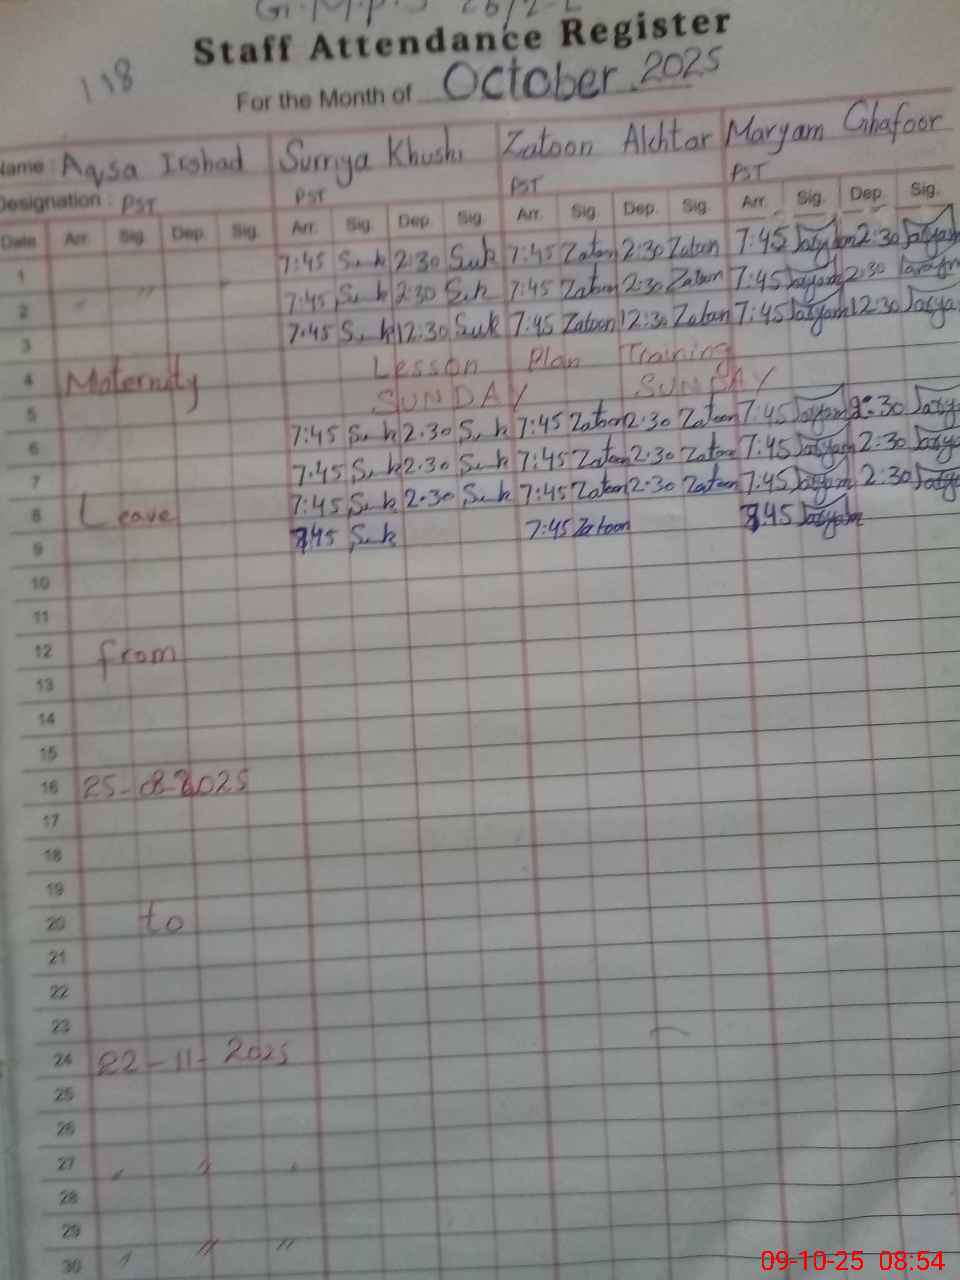 Staff Attendance Register
118
For the Month of October 2025
Name: Aqsa Irshad Surriya Khushi Zatoon Akhtar Maryam Ghafoor
Designation: PST PST PST PST
Date Arr. Sig. Dep. Sig. Arr. Sig. Dep. Sig. Arr. Sig. Dep. Sig. Arr. Sig. Dep. Sig.
1 7:45 Suk 2:30 Suk 7:45 Zatoon 2:30 Zatoon 7:45 2:30
2 7:45 Suk 2:30 Suk 7:45 Zatoon 2:30 Zatoon 7:45 2:30
3 7:45 Suk 12:30 Suk 7:45 Zatoon 12:30 Zatoon 7:45 12:30
4 Maternity Lesson Plan Training
5 SUNDAY SUNDAY
6 7:45 Suk 2:30 Suk 7:45 Zatoon 2:30 Zatoon 7:45 2:30
7 7:45 Suk 2:30 Suk 7:45 Zatoon 2:30 Zatoon 7:45 2:30
8 Leave 7:45 Suk 2:30 Suk 7:45 Zatoon 2:30 Zatoon 7:45 2:30
9 Suk 7:45 Zatoon
10
11
12 from
13
14
15
16 25-08-2025
17
18
19
20 to
21
22
23
24 22-11-2025
25
26
27
28
29
30
09-10-25 08:54